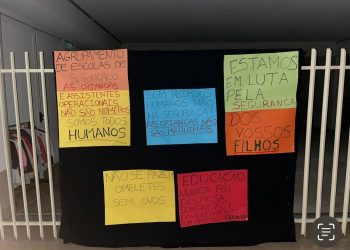 AGRUPAMENTO
DE ESCOLAS DE
S. GONÇALO
AS CRIANÇAS
E ASSISTENTES
OPERACIONAIS
NÃO SÃO NÚMEROS
SOMOS TODOS
HUMANOS
SEM RECURSOS
HUMANOS NÃO
HÁ SEGURANÇA!
AS CRIANÇAS NÃO
SÃO MÁQUINAS
ESTAMOS
EM LUTA
PELA
SEGURANÇA
DOS
VOSSOS
FILHOS
NÃO SE FAZEM
OMELETES
SEM OVOS
EDUCAÇÃO
NUNCA FOI
DESPESA
SEMPRE FOI